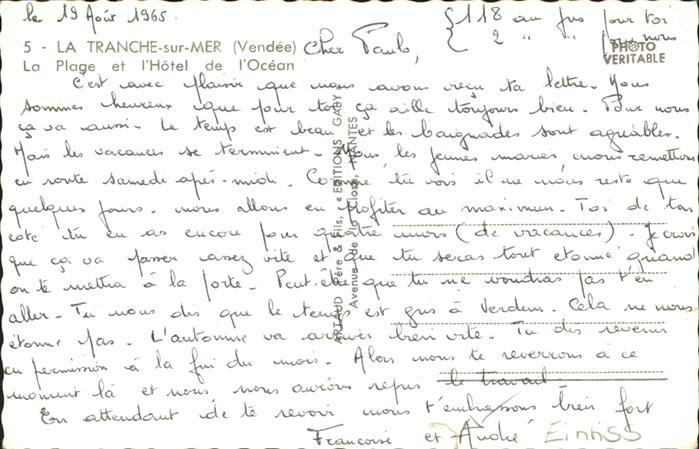 le 19 Août 1965.
{ 118 au jus pour toi
2 " " pour nous
5 - LA TRANCHE-sur-MER (Vendée)
La Plage et l'Hôtel de l'Océan
PHOTO VERITABLE
Cher Paulo,
C'est avec plaisir que nous avons reçu ta lettre. Nous
sommes heureux que pour toi ça aille toujours bien. Pour nous
ça va aussi. Le temps est beau et les baignades sont agréables.
Mais les vacances se terminent. Nous, les jeunes mariés, nous remettons
en route samedi après-midi. Comme tu vois il ne nous reste que
quelques jours. nous allons en profiter au maximum. Toi de ton
côté tu en as encore pour quatre mois (de vacances). Je crois
que ça va passer assez vite et que tu seras tout étonné quand
on te mettra à la porte. Peut-être que tu ne voudras pas t'en
aller. Tu nous dis que le temps est gris à Verdun. Cela ne nous
étonne pas. L'automne va arriver bien vite. Tu dis revenir
en permission à la fin du mois. Alors nous te reverrons à ce
moment là et nous, nous aurons repris le travail
En attendant de te revoir nous t'embrassons bien fort
Françoise et André
ARTAUD Père & Fils, EDITIONS GABY
Avenue de la Close, NANTES